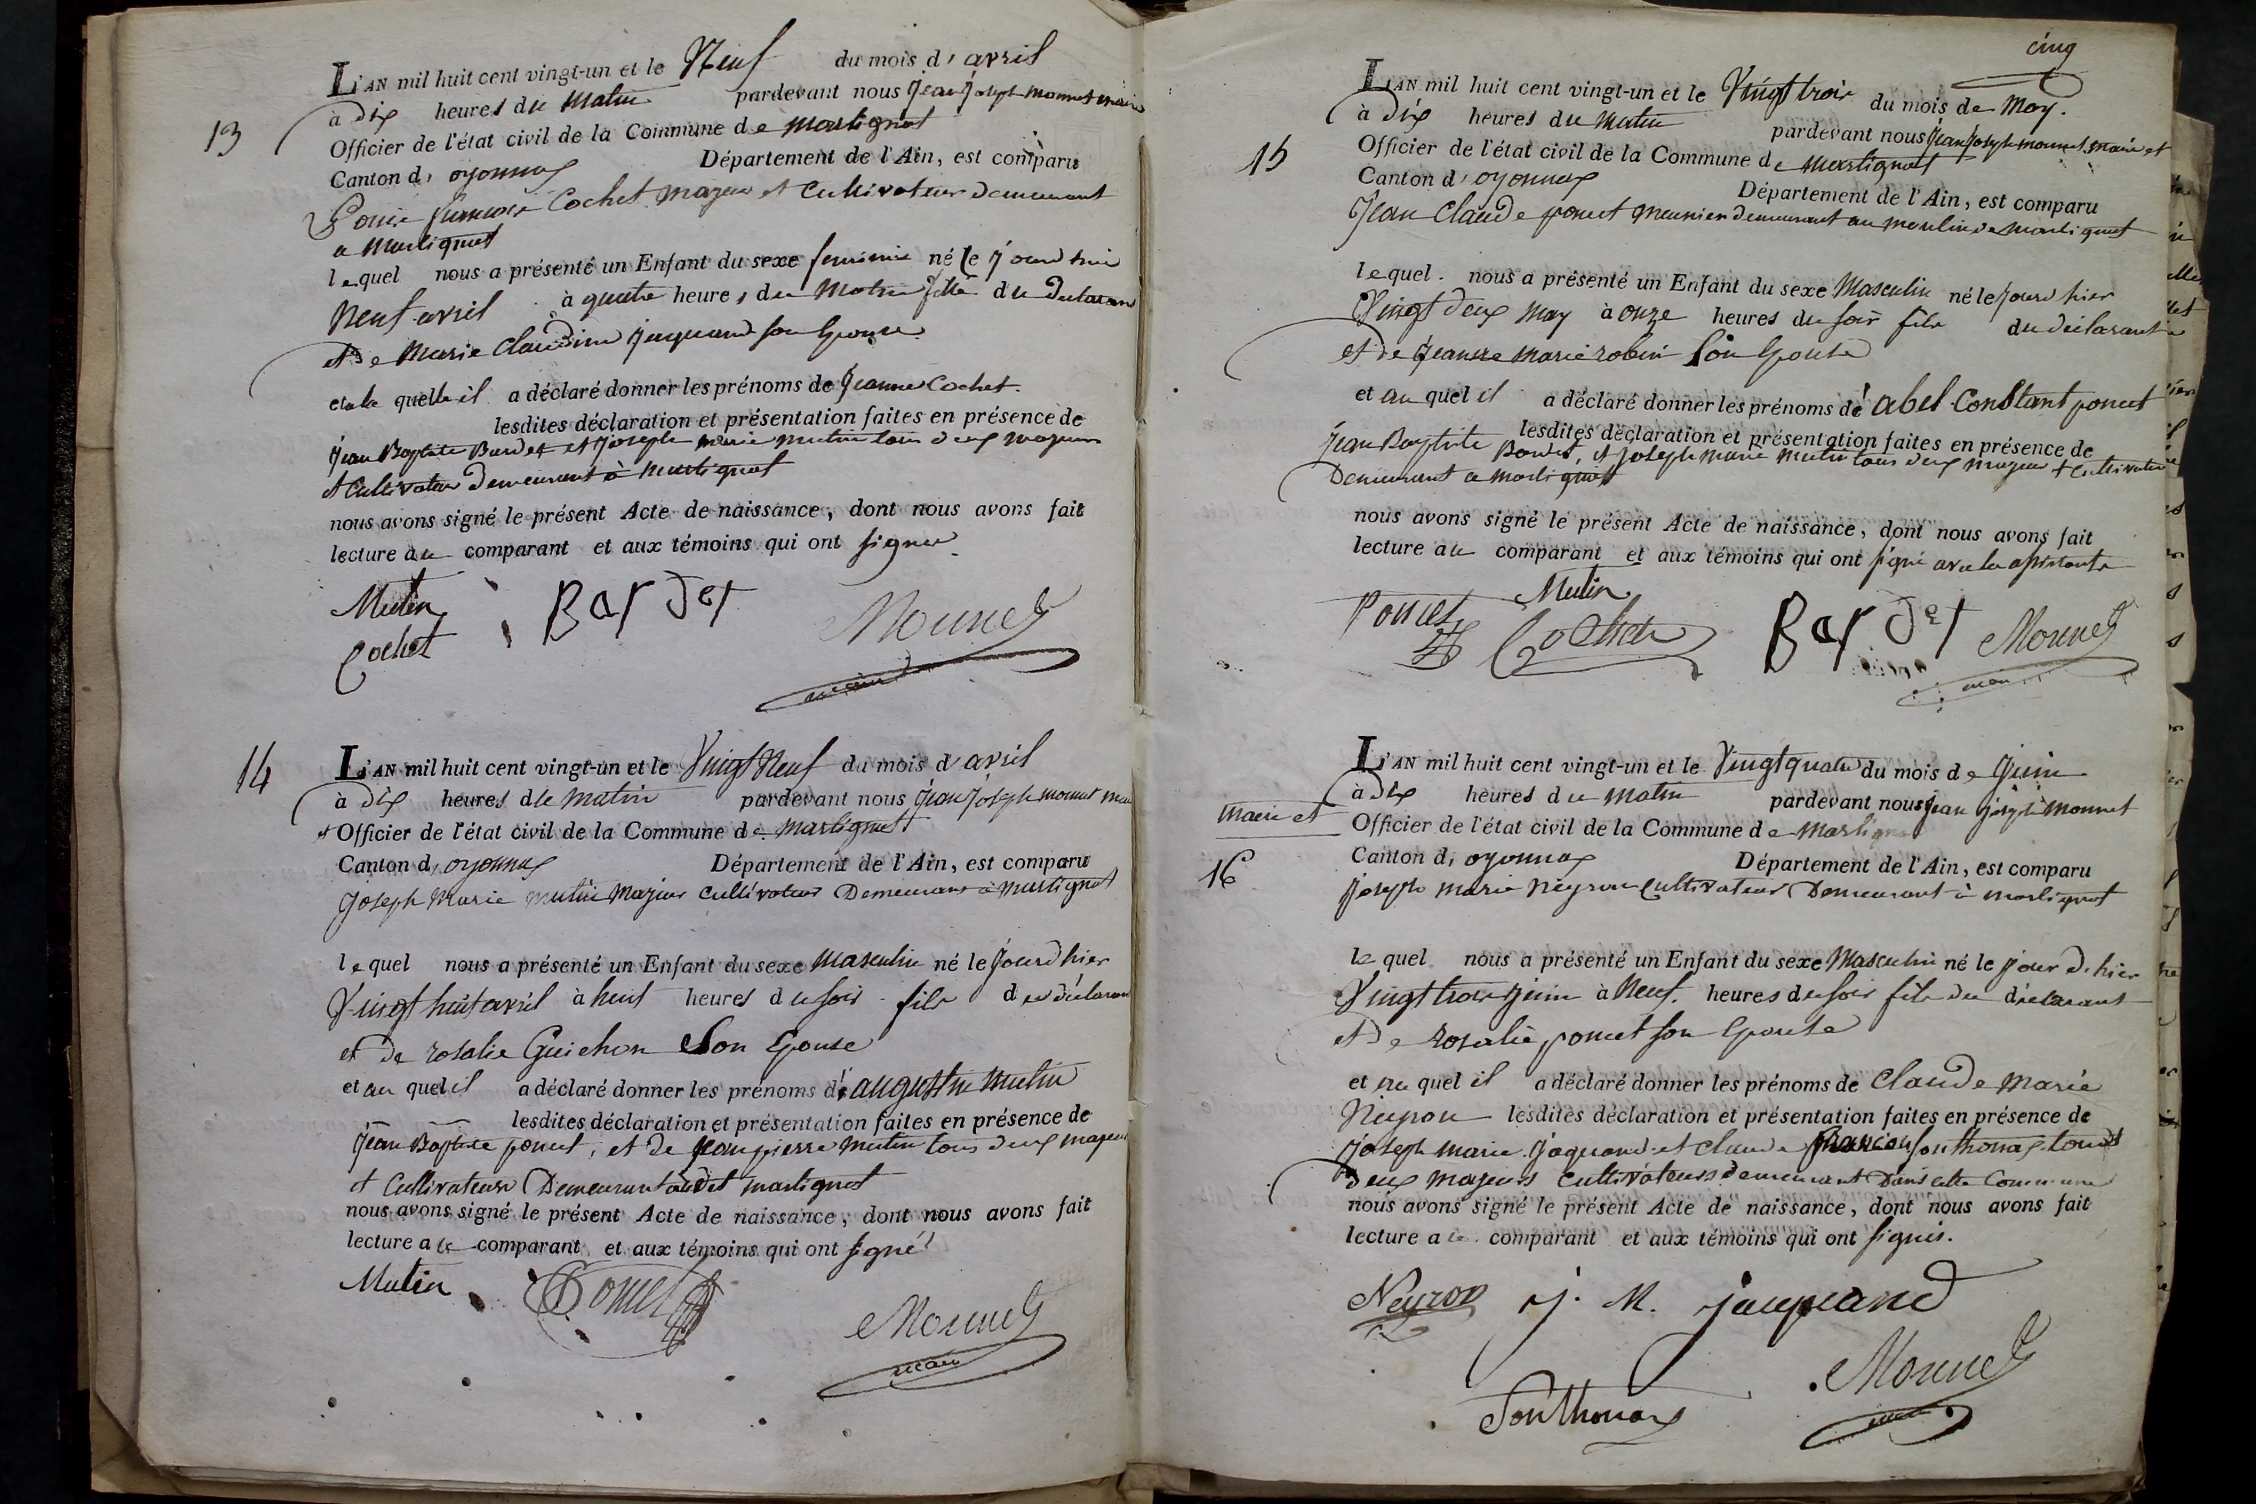 13
L'AN mil huit cent vingt-un et le Neuf du mois d'avril
à dix heures du matin pardevant nous jean joseph monnet maire
Officier de l'état civil de la Commune de martignat
Canton d'oyonnax Département de l'Ain, est comparu
françois Cochet majeur et Cultivateur demeurant
a martignat
lequel nous a présenté un Enfant du sexe feminin né le jourd'hui
Neuf avril à quatre heures du matin fille du declarant
et de Marie Claudine jaquand son Epouse
et a la quelle il a déclaré donner les prénoms de jeanne Cochet.
lesdites déclaration et présentation faites en présence de
jean Baptiste Bardet et joseph marie mutin tous deux majeurs
et Cultivateur demeurant à martignat
nous avons signé le présent Acte de naissance, dont nous avons fait
lecture au comparant et aux témoins qui ont signé
Mutin Bardet Monnet
Cochet
maire
14
L'AN mil huit cent vingt-un et le Vingt Neuf du mois d'avril
à dix heures du matin pardevant nous jean joseph monnet maire
et Officier de l'état civil de la Commune de martignat
Canton d'oyonnax Département de l'Ain, est comparu
joseph Marie mutin Majeur Cultivateur Demeurant à martignat
lequel nous a présenté un Enfant du sexe masculin né le jourd hier
Vingt huit avril à huit heures du soir fils du déclarant
et de rosalie Guichon Son Epouse
et au quel il a déclaré donner les prénoms de augustin mutin
lesdites déclaration et présentation faites en présence de
jean Baptiste poncet, et de jean pierre mutin tous deux majeurs
et Cultivateurs Demeurant audit martignat
nous avons signé le présent Acte de naissance, dont nous avons fait
lecture au comparant et aux témoins qui ont signé
Mutin Poncet
Monnet
maire
cinq
15
L'AN mil huit cent vingt-un et le Vingt trois du mois de may.
à dix heures du matin pardevant nous jean joseph monnet maire et
Officier de l'état civil de la Commune de martignat
Canton d'oyonnax Département de l'Ain, est comparu
jean Claude poncet meunier demeurant au moulin de martignat
lequel nous a présenté un Enfant du sexe Masculin né le jourd hier
Vingt deux may à onze heures du soir fils du déclarant
et de jeanne marie robin son Epouse
et au quel il a déclaré donner les prénoms de abel Constant poncet
lesdites déclaration et présentation faites en présence de
jean Baptiste Bardet, et joseph marie mutin tous deux majeur et Cultivateur
Demeurant a martignat
nous avons signé le présent Acte de naissance, dont nous avons fait
lecture au comparant et aux témoins qui ont signé avec les assistants
Mutin
Poncet Cochet Bardet Monnet
maire
L'AN mil huit cent vingt-un et le Vingt quatre du mois de juin
à dix heures du matin pardevant nous jean joseph monnet
maire et
Officier de l'état civil de la Commune de martignat
16
Canton d'oyonnax Département de l'Ain, est comparu
joseph marie neyron Cultivateur Demeurant à martignat
le quel nous a présenté un Enfant du sexe Masculin né le jour d'hier
Vingt trois juin à Neuf heures du soir fils du déclarant
et de rosalie poncet son Epouse
et au quel il a déclaré donner les prénoms de Claude Marie
Neyron lesdites déclaration et présentation faites en présence de
joseph marie jaquand et Claude françois sonthonax tous
deux majeurs Cultivateurs demeurant Dans cette Commune
nous avons signé le présent Acte de naissance, dont nous avons fait
lecture au comparant et aux témoins qui ont signés.
Neyron j. M. jacquand
Sonthonax Monnet
maire